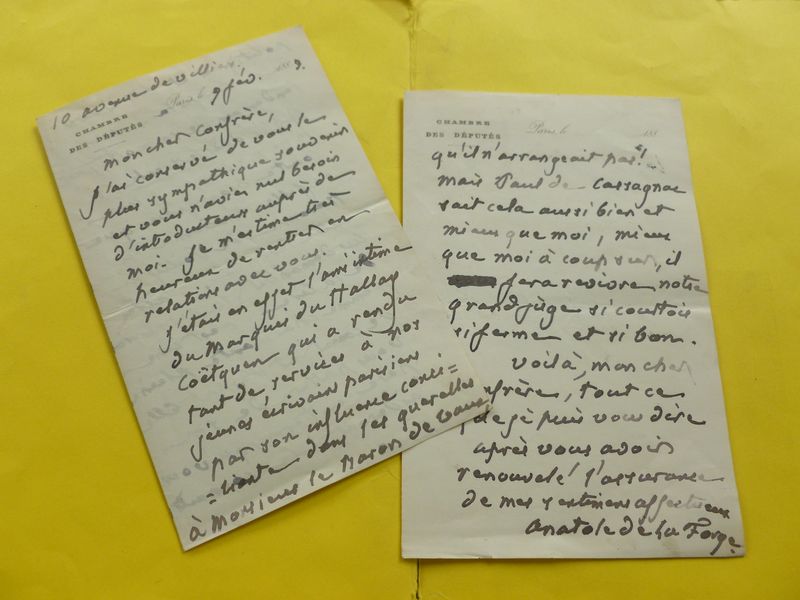 10 avenue de villiers.
Paris, le 9 fév. 1889.
CHAMBRE
DES DÉPUTÉS
Mon cher Confrère,
J'ai conservé de vous le
plus sympathique souvenir
et vous n'aviez nul besoin
d'introducteur auprès de
moi. Je m'estime très
heureux de rentrer en
relations avec vous.
J'étais en effet l'ami intime
du Marquis du Hallays
Coëtquen qui a rendu
tant de services à nos
jeunes écrivains parisiens
par son influence conci=
=liante dans les querelles
à Monsieur le Baron de Vaux
CHAMBRE
DES DÉPUTÉS
Paris, le 188
qu'il n'arrangeait pas!
mais Paul de Cassagnac
sait cela aussi bien et
mieux que moi, mieux
que moi à coup sur, il
fera revivre notre
grand juge si courtois
si ferme et si bon.
voilà, mon cher
confrère, tout ce
que je puis vous dire
après vous avoir
renouvelé l'assurance
de mes sentimens affectueux
Anatole de la Forge